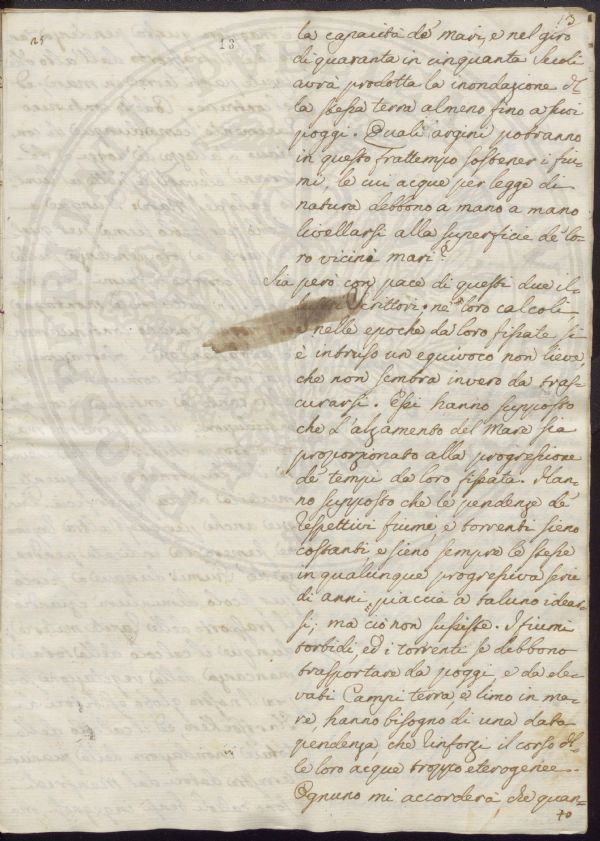 25
13
13
la capacità de' mari, e nel giro
di quaranta in cinquanta secoli
avrà prodotta la inondazione del
la stessa terra almeno fino a suoi
poggi. Quali argini potranno
in questo frattempo sostener i fiu-
mi, le cui acque per legge di
natura debbono a mano a mano
livellarsi alla superficie de' lo-
ro vicini mari?
Sia però con pace di questi due il-
scrittori, ne' loro calcoli,
e nelle epoche da loro fissate si
è intruso un equivoco non lieve,
che non sembra invero da tras-
curarsi. Essi hanno supposto
che l'alzamento del Mare sia
proporzionato alla progressione
de' tempi da loro fissata. Han-
no supposto che le pendenze de'
respettivi fiumi e torrenti sieno
costanti, e sieno sempre le stesse
in qualunque progressiva serie
di anni, piaccia a taluno idear-
si; ma ciò non sussiste. I fiumi
torbidi, ed i torrenti se debbono
trasportare da poggi, e da ele-
vati Campi terra, e limo in ma-
re, hanno bisogno di una data
pendenza che rinforzi il corso del
le loro acque troppo eterogenee.
Ognuno mi accorderà che quan-
to